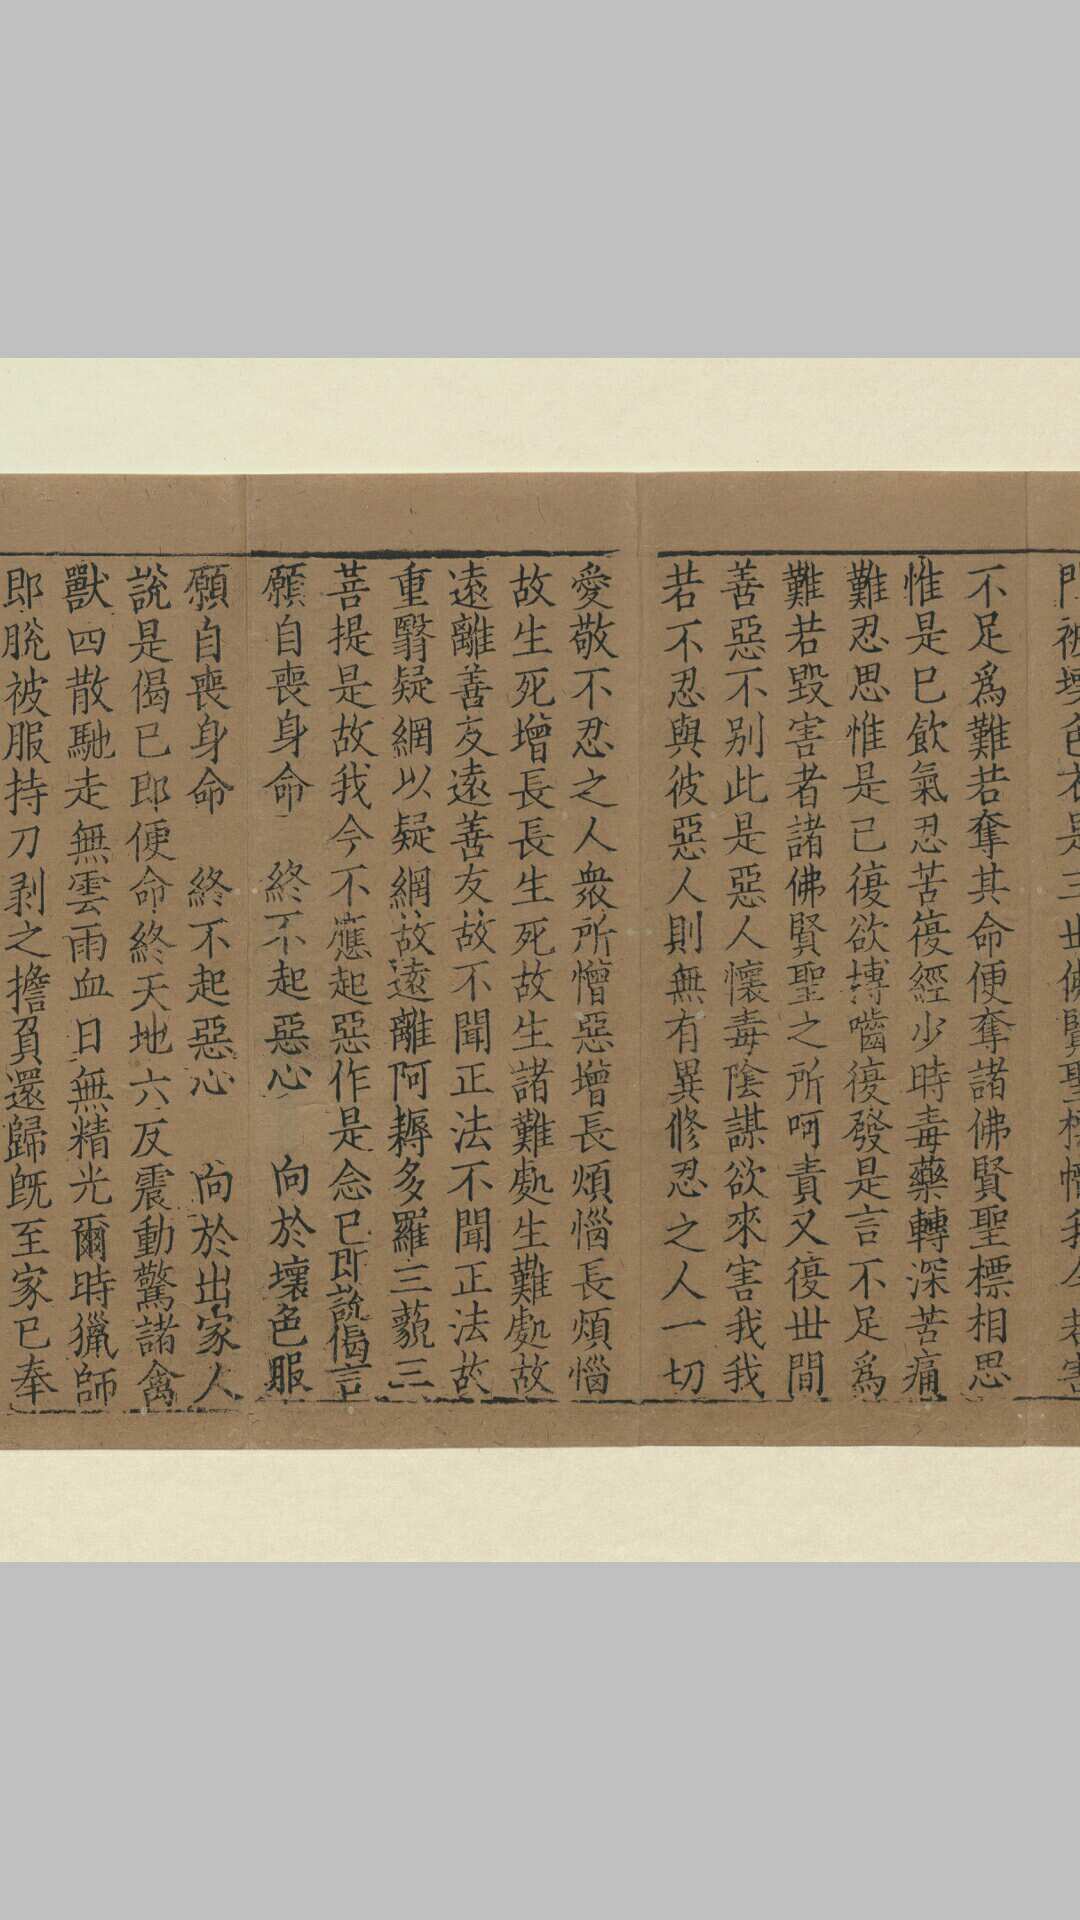 門被壞色衣是三世佛賢聖標幟我今若害
不足為難若奪其命便奪諸佛賢聖標相思
惟是已飲氣忍苦復經少時毒藥轉深苦痛
難忍思惟是已復欲摶嚙復發是言不足為
難若毀害者諸佛賢聖之所呵責又復世間
善惡不別此是惡人懷毒陰謀欲來害我我
若不忍與彼惡人則無有異修忍之人一切
愛敬不忍之人衆所憎惡增長煩惱長煩惱
故生死增長長生死故生諸難處生難處故
遠離善友遠善友故不聞正法不聞正法故
重翳疑網以疑網故遠離阿耨多羅三藐三
菩提是故我今不應起惡作是念已即說偈言
願自喪身命 終不起惡心 向於壞色服
願自喪身命 終不起惡心 向於出家人
說是偈已即便命終天地六反震動驚諸禽
獸四散馳走無雲雨血日無精光爾時獵師
即脫被服持刀剥之擔負還歸既至家已奉